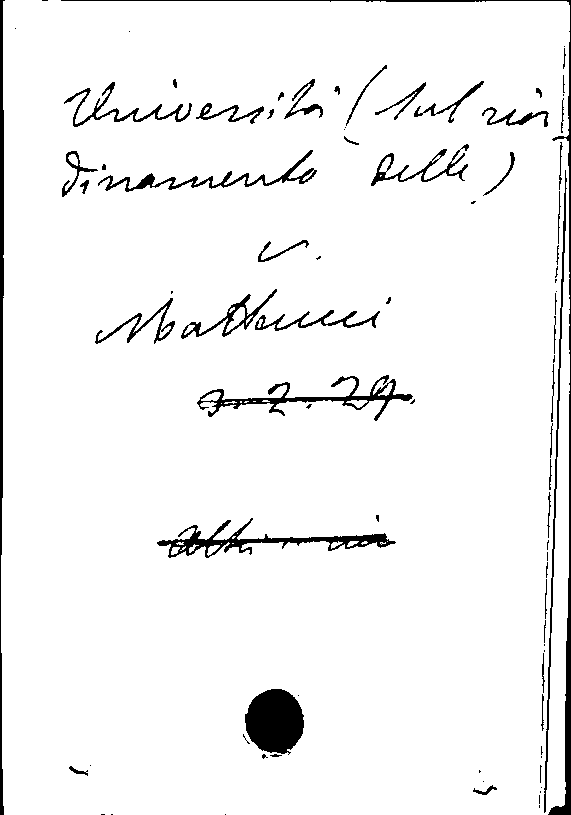 Università (sul rior-
dinamento delle)
v.
Matteucci
3. 2. 29.